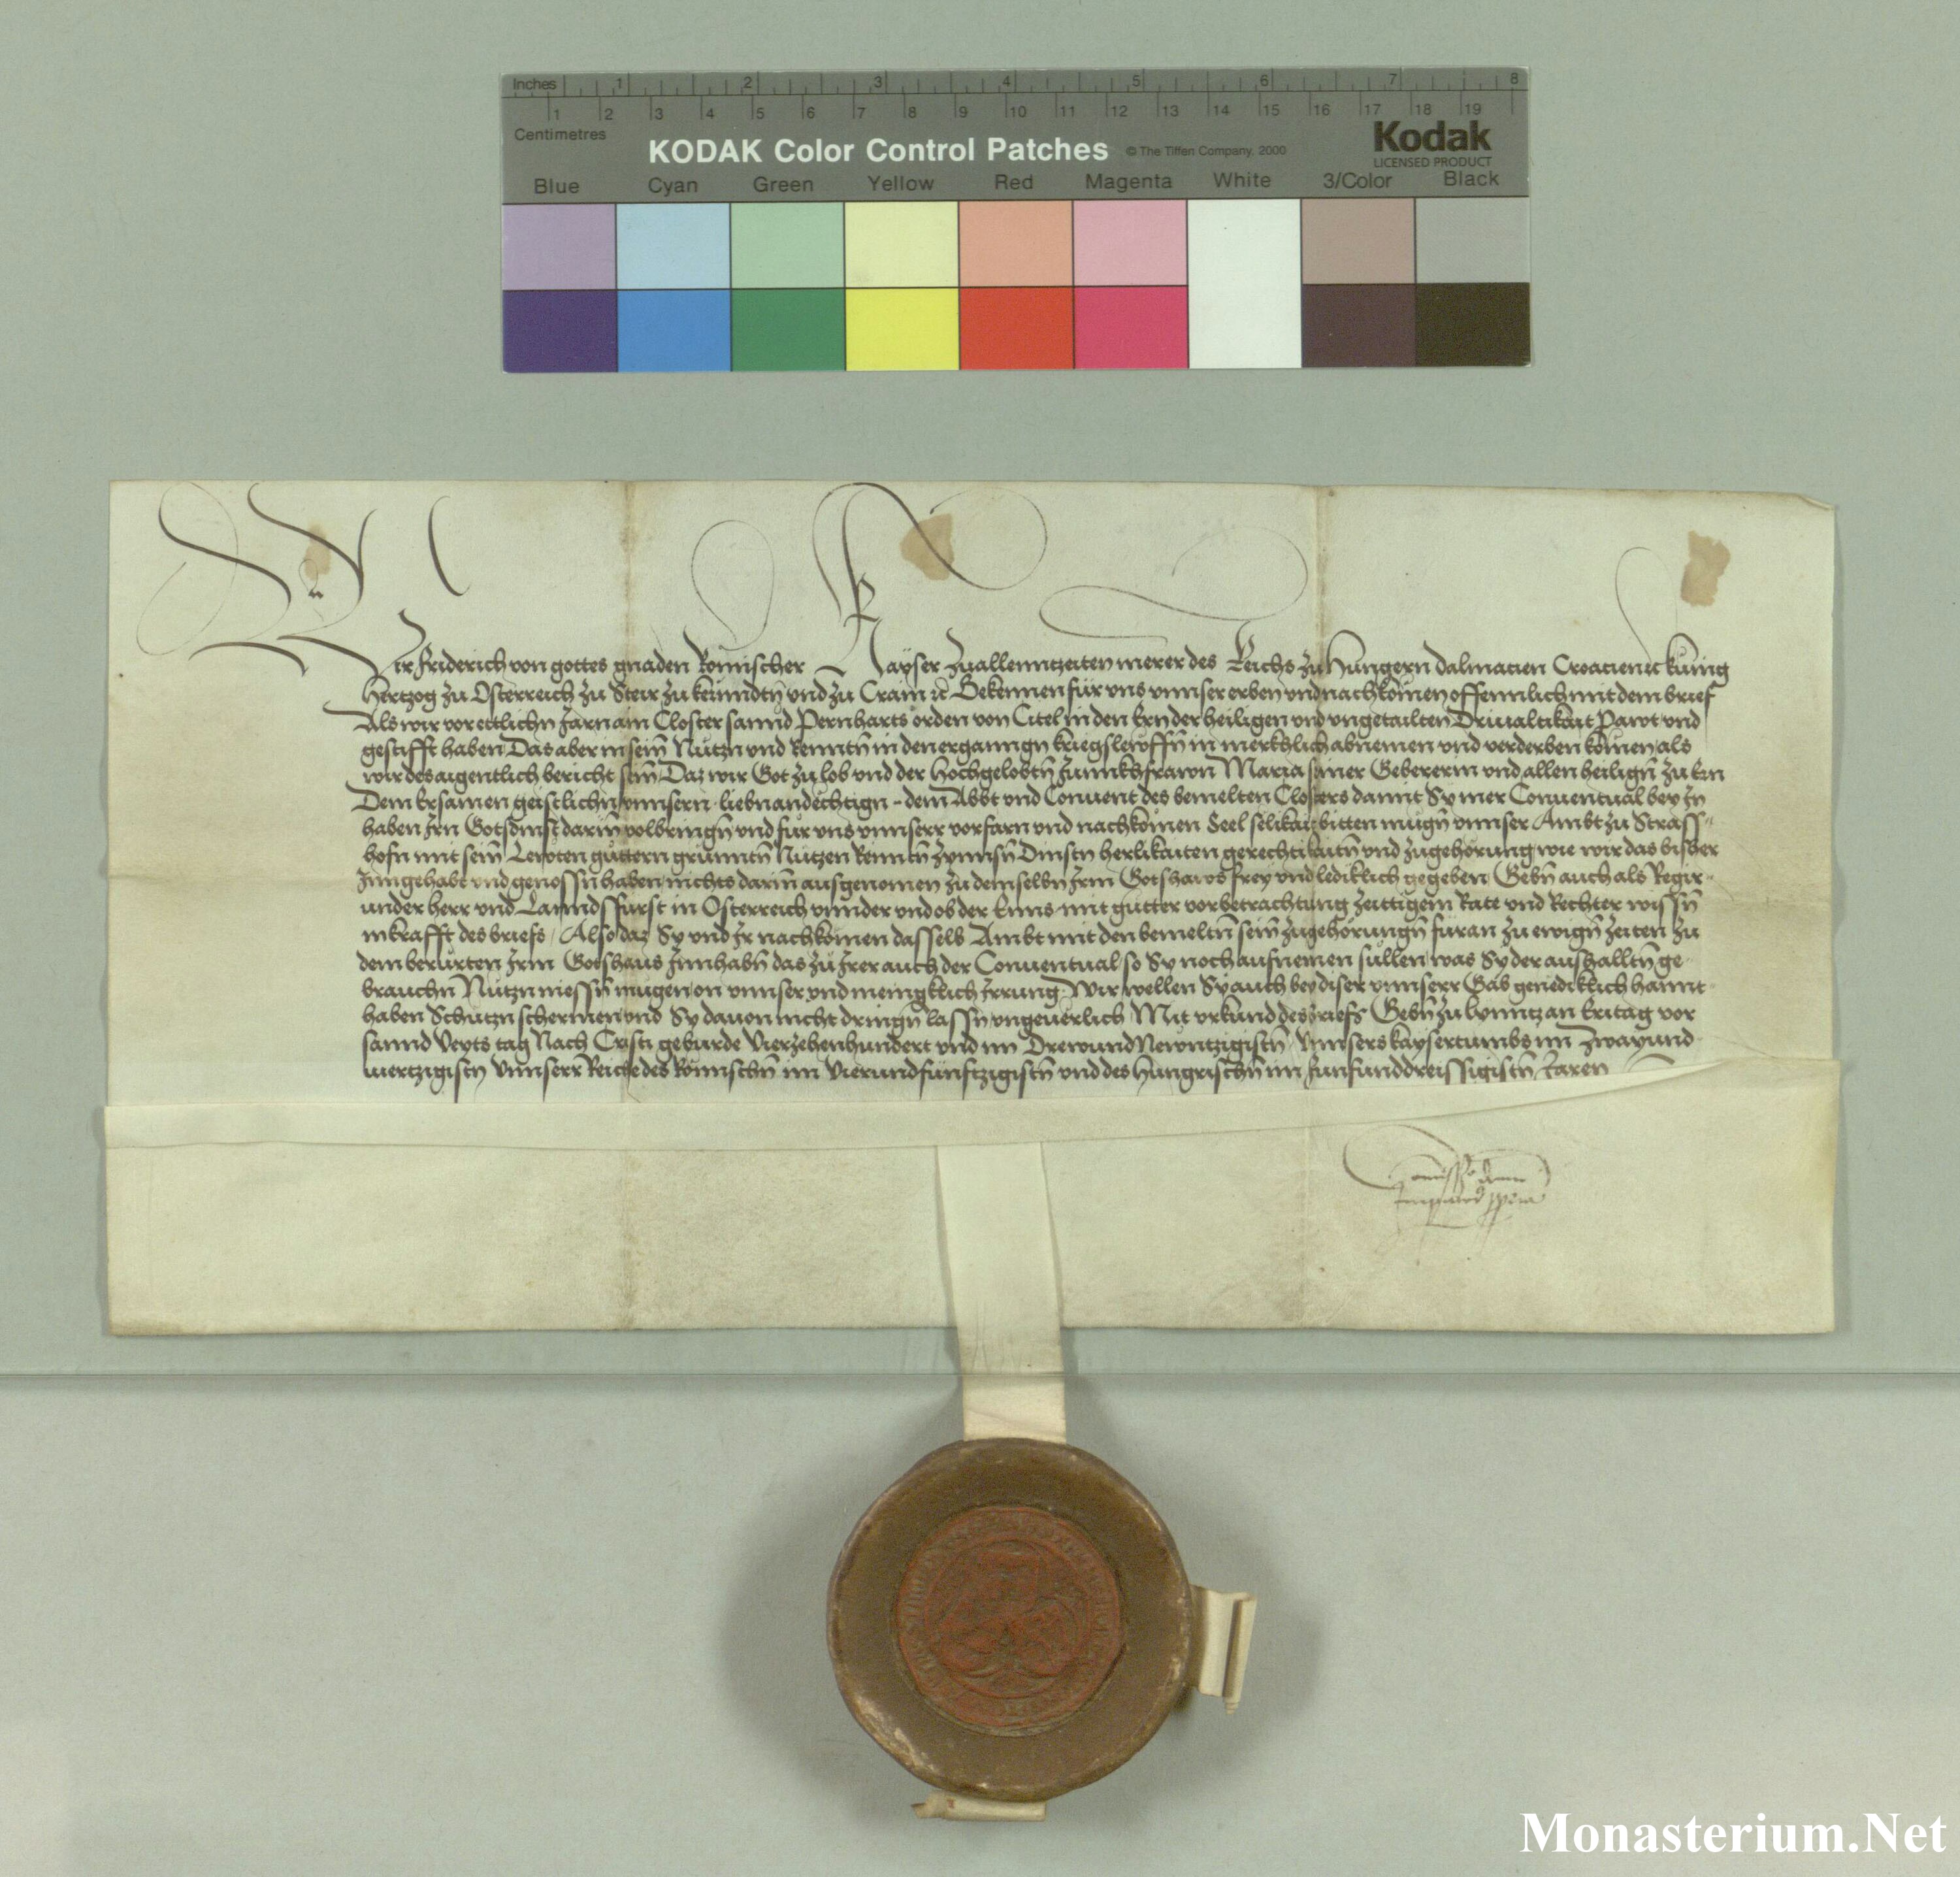 Inches 1 2 3 4 5 6 7 8
1 2 3 4 5 6 7 8 9 10 11 12 13 14 15 16 17 18 19
Centimetres
KODAK Color Control Patches © The Tiffen Company, 2000 Kodak
LICENSED PRODUCT
Blue Cyan Green Yellow Red Magenta White 3/Color Black
Wir Friderich von gottes gnaden Römischer Kayser zuallenntzeiten merer des Reichs zu Hungern dalmacien Croacien ꝛc kunig
Hertzog zu Osterreich zu Steir zu kernndtn̄ vnd zu Crain ꝛc Bekennen für vns vnnser erben vnd nachkomen offennlich mit dem brief
Als wir vor ettlichn Jarn ain Closter sannd Pernharts orden von Citel in den Ern der heiligen vnd vngetailten Driualtikait Pawt vnd
gestifft haben Das aber in sein̄ Nützn vnd Renntn̄ in den erganngn kriegslewffn̄ in merkhlich abnemen vnd verderben komen als
wir des aigentlich bericht sein̄ Daz wir Got zu lob vnd der Hochgelobtn̄ Junnkhfrawn Maria seiner Gebererin vnd allen heilign̄ zu Ern
Dem Ersamen geistlichn vnnsern liebn andechtign dem Abbt vnd Conuent des bemelten Closters damit Sy mer Conuentual bey Jn
haben Jrn Gotsdinst darin̄ volbringn̄ vnd für vns vnnserr vorfarn vnd nachkomen Seel selikait bitten mügn̄ vnnser Ambt zu Strass
hofn mit sein̄ Lewten güttern grünntn̄ Nützen Rennttn̄ Zynnsn̄ Dinstn herlikaiten gerechtikaitn̄ vnd zugehörung wie wir das bisher
Jnngehabt vnd genossn̄ haben nichts darin̄ ausgenomen zu demselbn Jrm Gotshaws frey vnd lediklich gegeben Gebn̄ auch als Regir
under herr vnd Lanndsfürst in Osterreich vnnder vnd ob der Enns mit gutter vorbetrachtung zeittigem Rate vnd Rechter wissn̄
in krafft des briefs Also daz Sy vnd Jr nachkomen dasselb Ambt mit den bemeltn̄ sein̄ zugehörungn̄ füran zu ewign̄ zeiten zu
dem berürten Jrm Gotshaus Jnnhabn̄ das zu Jrer auch der Conuentual so Sy noch aufnemen süllen was Sy der aushalltn̄ ge
brauchn̄ Nützn niessn̄ mügen on vnnser vnd menigklich Jrrung Wir wellen Sy auch bey diser vnnserr Gab genediklich hannt
haben Schützn schermen vnd Sy dauon nicht dringn̄ lassn̄ vngeuerlich Mit vrkund des briefs Gebn̄ zu Lynntz an Eritag vor
sannd Veyts tag Nach Cristi geburde Vierzehenhundert vnd im Drewundnewntzigistn̄ Vnnsers kaysertumbs im zwayund
viertzigistn Vnnserr Reiche des Römischn̄ im Vierundfünftzigistn̄ vnd des Hungrischn̄ im Fünfunddreissigistn̄ Jaren
Commissio domini
Imperatoris propria
Monasterium.Net